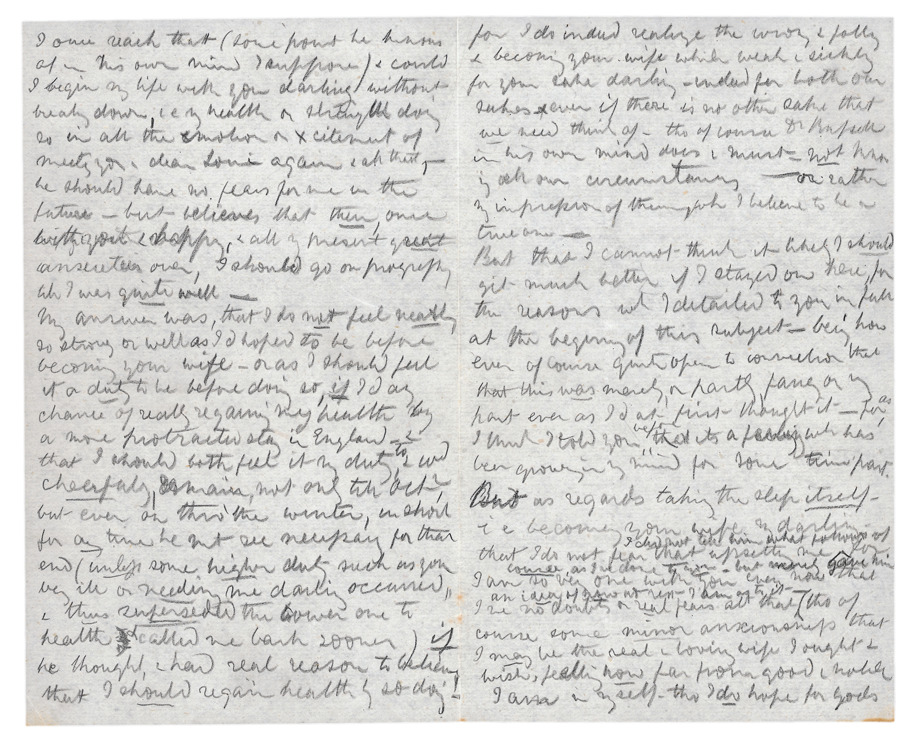 I once reach that (some point he knows
of in his own mind I suppose) & could
I begin my life with you darling without
breaking down, i.e. my health or strength doing
so in all the emotion or xcitement of
meeting you & dear Louie again & all that,
he should have no fears for me in the
future – but believes that then, once
with you & happy, & all my present great
anxieties over, I should go on progressing
till I was quite well —
My answer was, that I do not feel nearly
so strong or well as I'd hoped to be before
becoming your wife – or as I should feel
it a duty to be before doing so, if I'd any
chance of really regaining my health by
a more protracted stay in England –
that I should both feel it my duty to, & wd
cheerfully, remain, not only till Octr,
but even on thro' the winter, in short
for any time he might see necessary for that
end (unless some higher duty such as your
being ill or needing me darling occurred,
& thus superseded the lower one to
health & called me back sooner) if
he thought, & had real reason to believe
that I should regain health by so doing!
for I do indeed realize the wrong & folly
& becoming your wife while weak & sickly
for your sake darling – indeed for both our
sakes & even if there is no other sake that
we need think of – tho of course Dr Russell
in his own mind does & must – not knowing
all our circumstances — or rather
my impression of them, wh I believe to be a
true one —
But that I cannot think it likely I should
get much better if I stayed on here, for
the reasons wh I detailed to you in full
at the beginning of this subject – being now
even of course quite open to conviction that
that this was merely, or partly, fancy on my
part even as I'd at first thought it – for as
I think I told you before that its a feeling wh has
been growing in my mind for some time past.
But as regards taking the step itself –
i e becoming your wife my darling –
I did not tell him what follows of
that I do not fear that upsetting me for
course, as I've done to you – but merely gave him
I am so very one with you even now that
an idea of
I've no doubts or real fears abt that (tho of
course some minor anxious that
I may be the real & loving wife I ought &
wish, feeling how far from good, & noble
I am in myself – tho I do hope for gods